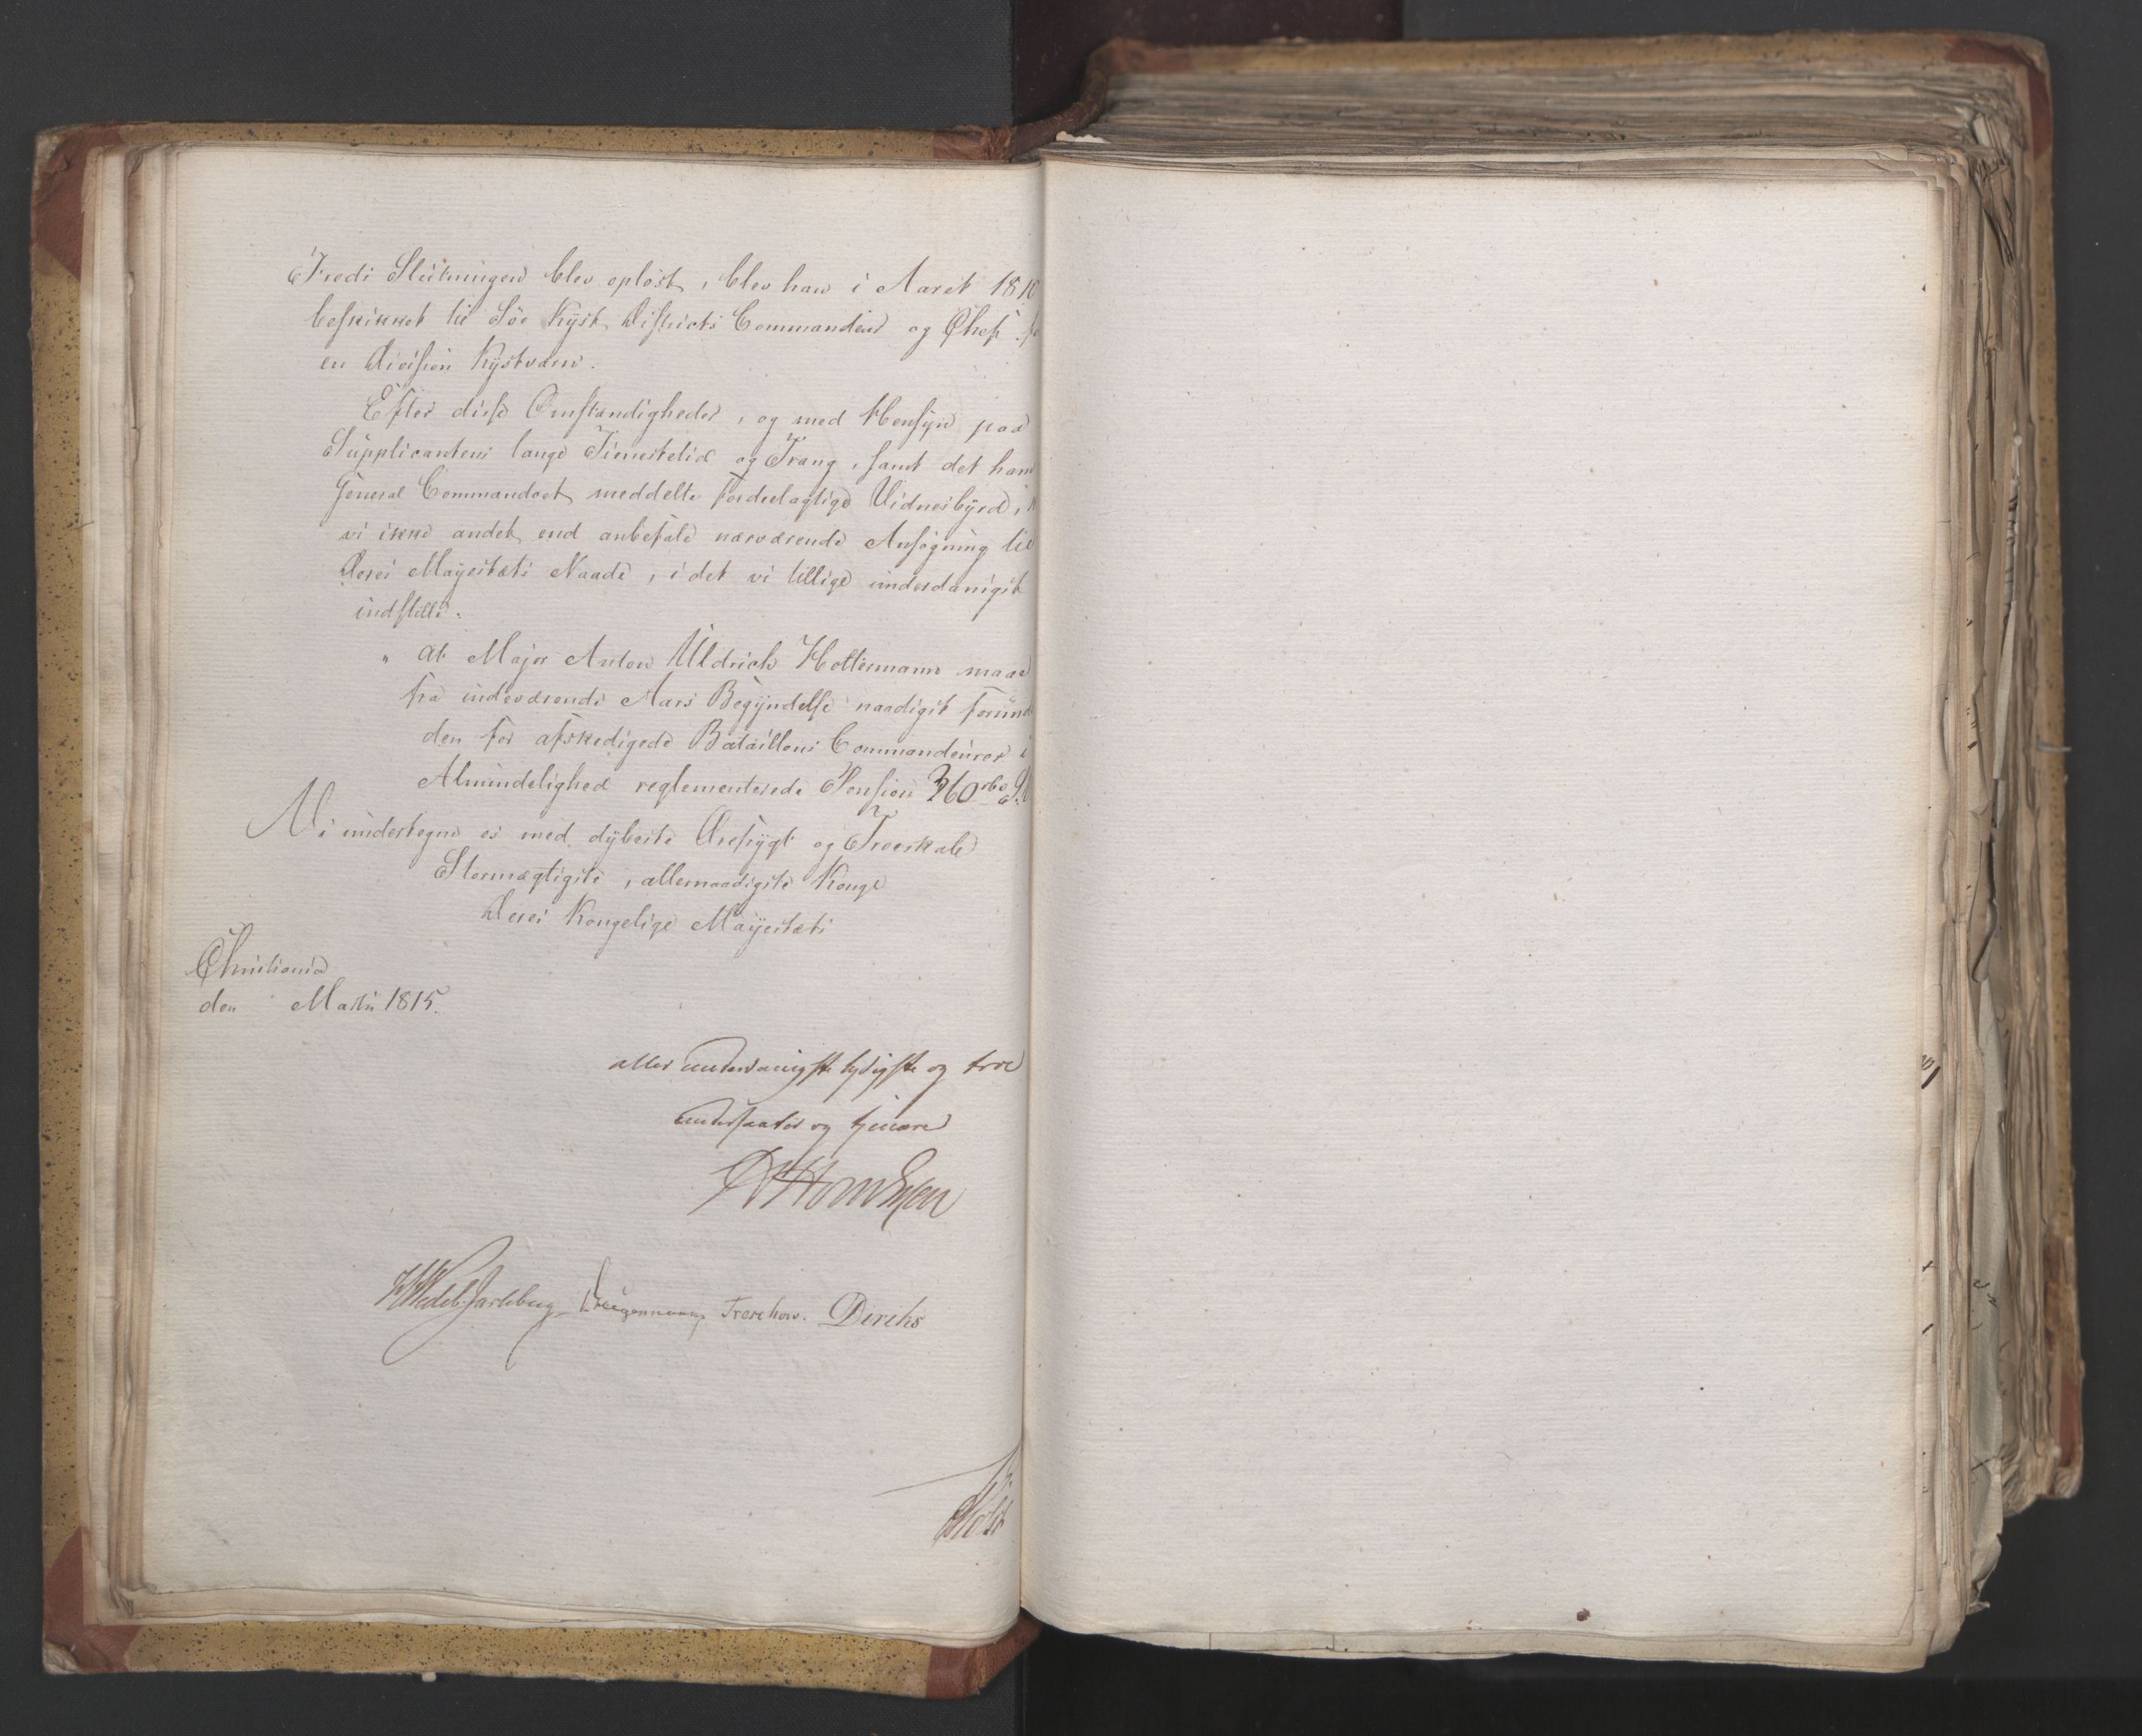 Fredi Slutningen blev opløst, blev han i Aaret 1810
beskikket til Søe Kyst Districts Commandeur og Chef fo
en Division Kystværn.
Efter disse Omstændigheder, og med Hensyn paa
Supplicantens lange Tienestetid og Trang, samt det ham
General Commandoet meddelte fordeelagtige Vidnesbyrd, k
vi ikke andet end anbefale nærværende Ansøgning til
Deres Mayestæts Naade, i det vi tillige underdanigst
indstille.
" at Major Anton Uldrich Hottermann maae
fra indeværende Aars Begyndelse naadigst forund
den for afskedigede Bataillons Commandeurer i
Almindelighed reglementerede Pension 360 rbd S.
Vi undertegne os med dybeste Ærefrygt og Troeskab
Stormægtigste, allernaadigste Konge
Deres Kongelige Mayestæts
Christiania
den Martii 1815.
aller underdanigste lydigste og troe
undersaater og tjenere
HWedel Jarlsberg Treschow. Diriks
Holst